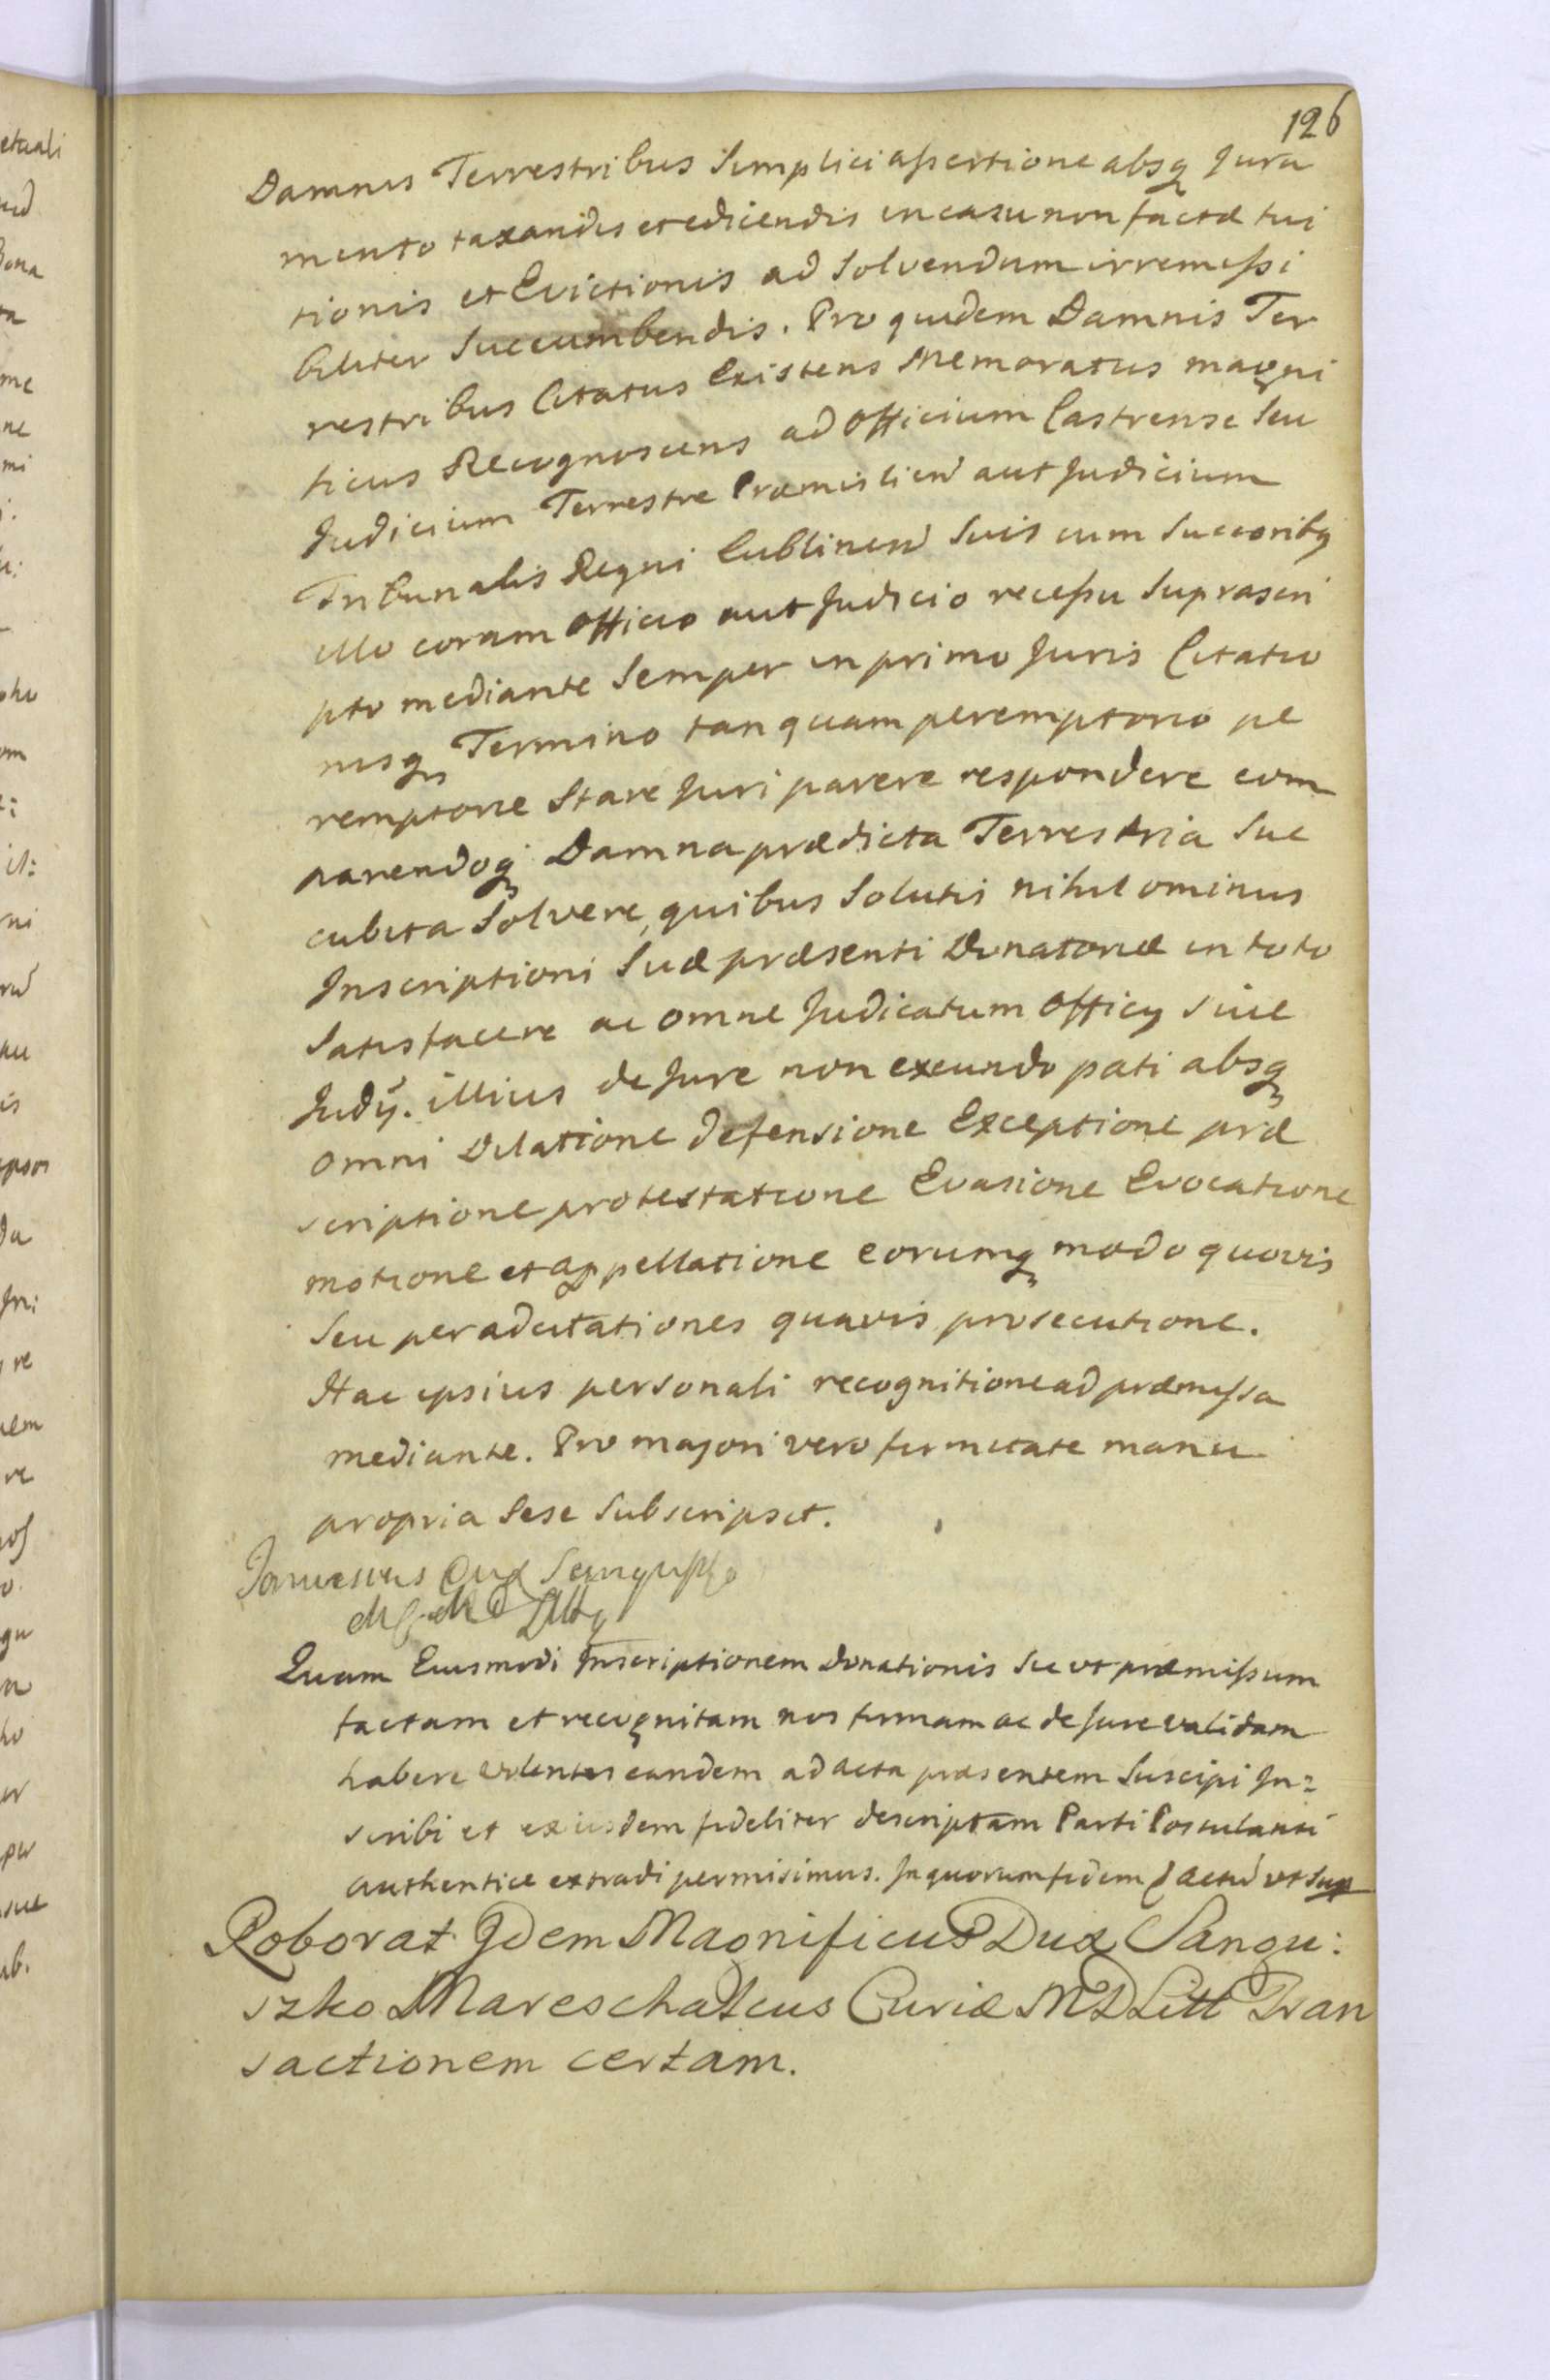 126
Damnis Terrestribus Simplici assertione absq Jura
mento taxandis et edicendis in casu non factæ tui
tionis et Evictionis ad Solvendum irremissi
biliter Succumbendis. Pro quidem Damnis Ter
restribus Citatus Existens Memoratus magni
ficus Recognoscens ad Officium Castrense Seu
Judicium Terrestre Præmislien aut Judicium
Tribunalis Regni Lublinen Suis cum Succorib9
illo coram Officio aut Judicio recessu Suprascri
pto mediante Semper in primo Juris Citatio
nisq Termino tanquam peremptorio pe
remptorie Stare Juri parere respondere com
parendoq Damna prædicta Terrestria Suc
cubita Solvere, quibus Solutis nihilominus
Inscriptioni Suæ præsenti Donatoriæ in toto
Satisfacere ac omne Judicatum Officy sive
Judÿ. illius de Jure non exeundo pati absq
omni Dilatione defensione Exceptione præ
scriptione protestatione Evasione Evocatione
motione et appellatione eorumq modo quovis
Seu per adcitationes quavis prosecutione.
Hac ipsius personali recognitione ad præmissa
mediante. Pro majori vero firmitate manu
propria Sese Subscripsit.
Janussius Dux Sangusko
Quam Eiusmodi Inscriptionem Donationis Sic ut præmissum
factam et recognitam nos firmam ac de Jure validam
habere volentes eandem ad acta præsentem Suscipi In=
scribi et ex iisdem fideliter descriptam Parti Postulanti
authentice extradi permisimus. In quorum fidem Actu ut Sup
Roborat Idem Magnificus Dux Sangu:
szko Mareschalcus Curiæ M D Litt Tran
sactionem certam.